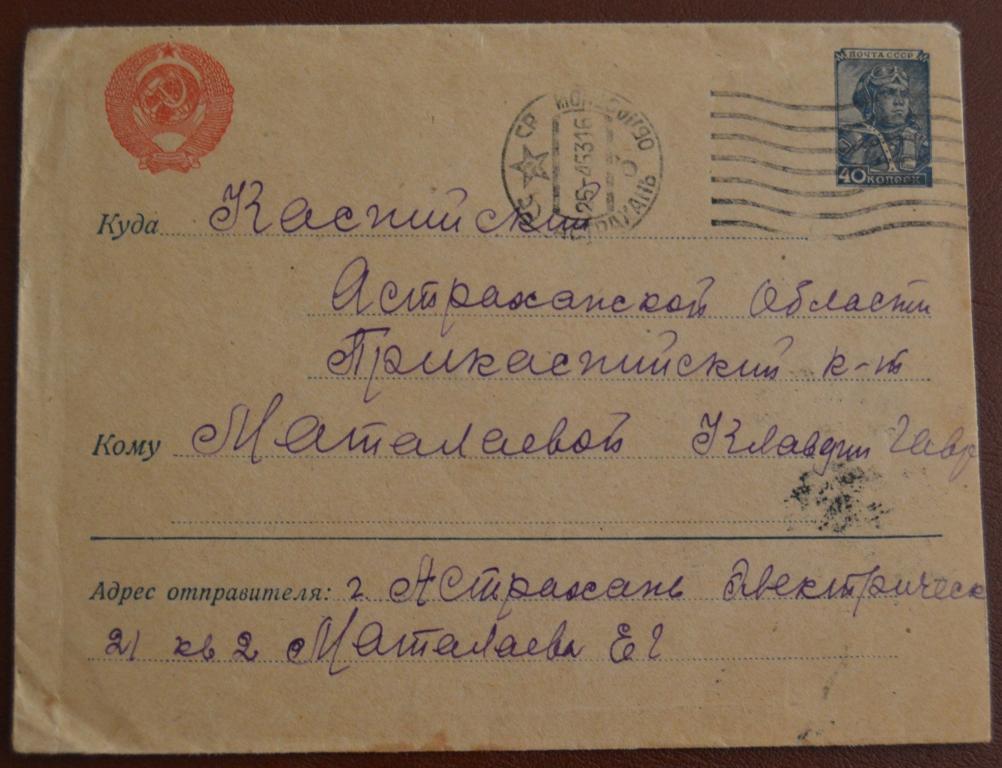 ПОЧТА СССР
40 КОПЕЕК
25-45316
АСТРАХАНЬ
Куда Каспийский
Астраханской Области
Прикаспийский к-т
Кому Маталаевой Клавдии Гавр
Адрес отправителя: г Астрахань Электрическ
21 кв 2 Маталаева Е Г